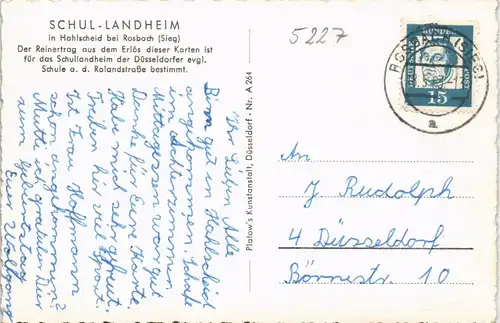 SCHUL-LANDHEIM
in Hahlscheid bei Rosbach (Sieg)
Der Reinertrag aus dem Erlös dieser Karten ist
für das Schullandheim der Düsseldorfer evgl.
Schule a. d. Rolandstraße bestimmt.
Ihr Lieben Alle
Binn gut in Hahlscheid
angekommen. Schlafe
im Achterzimmer.
Mittagessen war gut
Danke für Eure Karte
Habe mich sehr gefreut.
Treiben hir viel Sport.
Ist Frau Hoffmann
schon angekommen?
Mutti ich gratuliere Dir
zum Geburtstag
Euer Wolfgang
Platow's Kunstanstalt, Düsseldorf - Nr. A 264
5227
DEUTSCHE
BUNDESPOST
15
ROSBACH (SIEG)
a
An
J Rudolph
4 Düsseldorf
Börnestr. 10